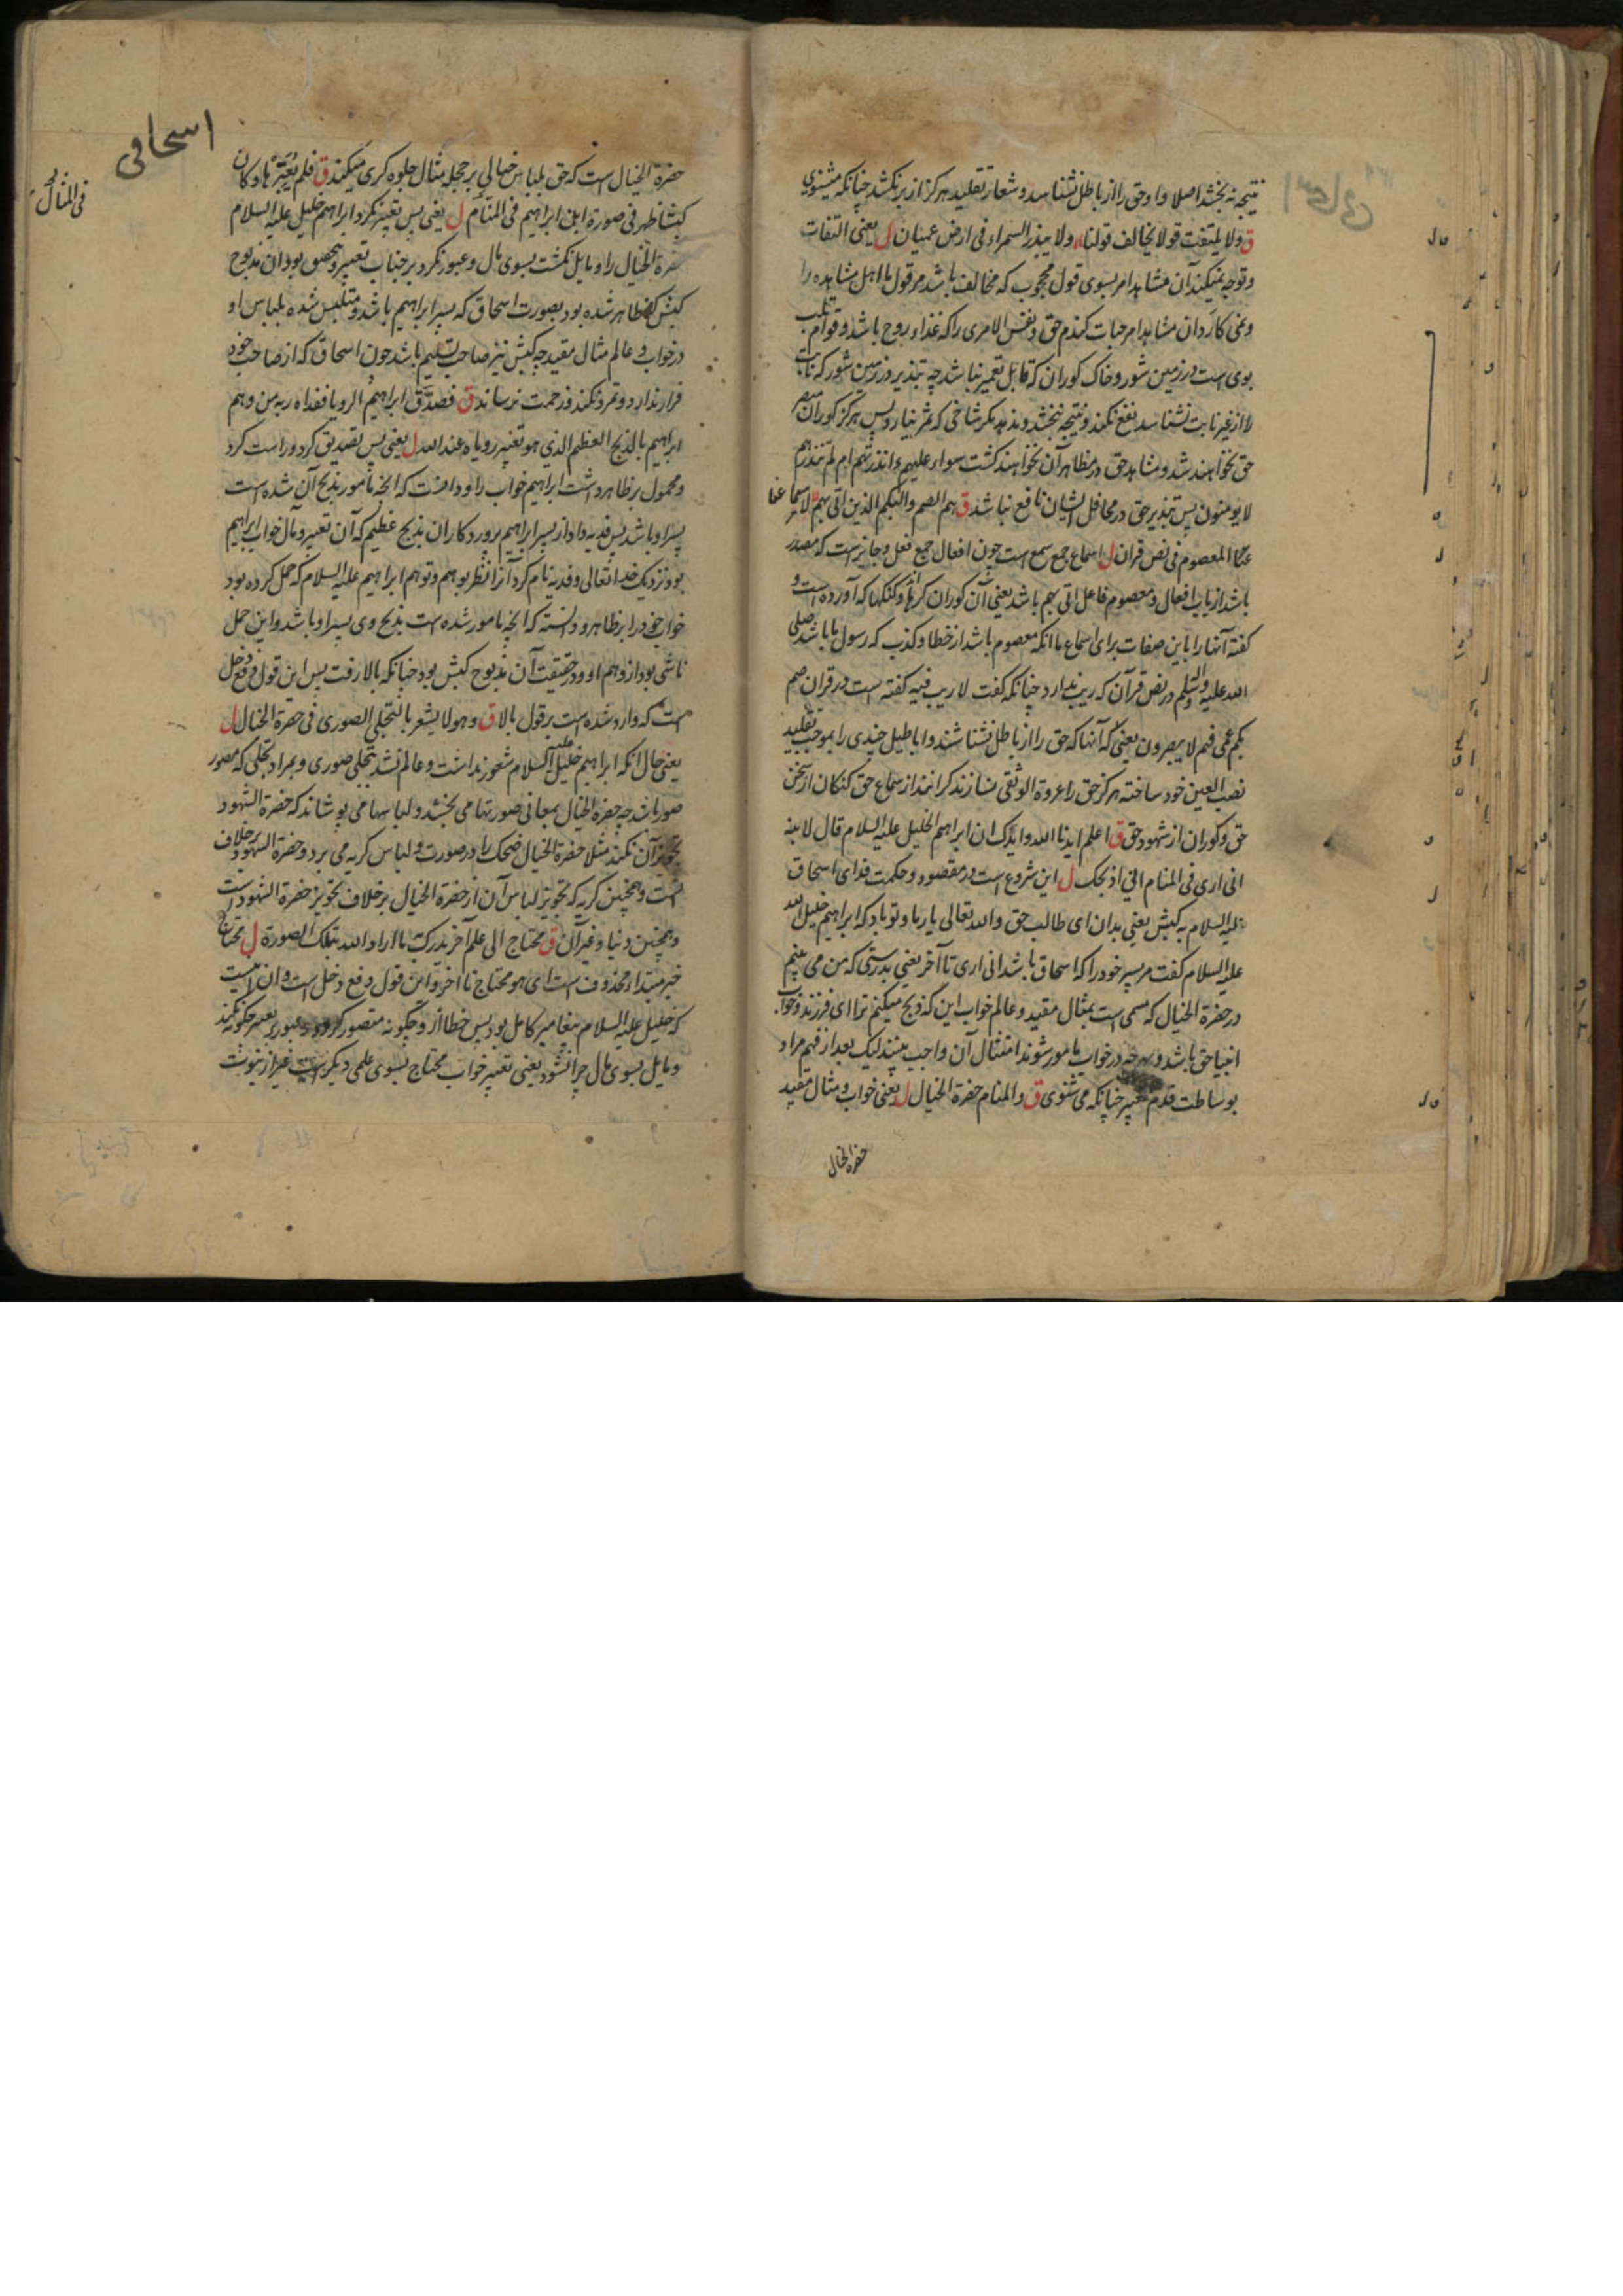 نتیجه نه بخشد اصلا و او حق را از باطل نشناسد و شعار تقلید هرگز از بر نکشد چنانکه میشنوی
ق ولا یلتفت قولا یخالف قولنا ولا یبذر السمراء فی ارض عمیان ل یعنی التفات
و توجه نمیکند آن مشاهد امر بسوی قول محجوب که مخالف باشد مر قول ما اهل مشاهده را
و نمی کارد آن مشاهد امر حبات گندم حق و نفس الامری را که غذاء روح باشد و قوام قلب
بوی است در زمین شور و خاک کوران که قابل تعمیر نباشد چه تبذیر در زمین شور که ثابت
را از غیر ثابت نشناسد نفع نکند و نتیجه نبخشد و ندهد مگر شاخی که ثمر نیارد پس هرگز کوران مبصر
حق نخواهند شد و مشاهد حق در مظاهر آن نخواهند گشت سواء علیهم ءانذرتهم ام لم تنذرهم
لا یومنون پس تبذیر حق در محافل ایشان نافع نباشد ق هم الصم والبکم الذین اتی بهم لاسماعنا
المعصوم فی نص قران ل اسماع جمع سمع است چون افعال جمع فعل و جایز است که مصدر
باشد از باب افعال و معصوم فاعل اتی بهم باشد یعنی آن کوران کرها و گنگها که آورده است و
گفته آنها را باین صفات برای اسماع ما انکه معصوم باشد از خطا و کذب که رسول ما باشد صلی
الله علیه و اله و سلم در نص قرآن که ریب ندارد چنانکه گفت لا ریب فیه گفته است در قران صم
بکم عمی فهم لا یبصرون یعنی که آنها که حق را از باطل نشناسند و اباطیل چندی را بموجب تقلید
نصب العین خود ساخته هرگز حق را عروة الوثقی نسازند کرانند از سماع حق گنگان از سخن
حق و کوران از شهود حق ق اعلم ایدنا الله و ایاک ان ابراهیم الخلیل علیه السلام قال لابنه
انی اری فی المنام انی اذبحک ل این شروع است در مقصود و حکمت فدای اسحاق
علیه السلام به کبش یعنی بدان ای طالب حق و الله تعالی یار ما و تو باد که ابراهیم خلیل الله
علیه السلام گفت مر پسر خود را که اسحاق باشد انی اری تا آخر یعنی بدرستی که من می بینم
در حضرة الخیال که مسمی است بمثال مقید و عالم خواب این که ذبح میکنم ترا ای فرزند و خواب
انبیا حق باشد و هرچه در خواب مامور شوند امتثال آن واجب بینند لیک بعد از فهم مراد
بوساطت قدم تعبیر چنانکه می شنوی ق والمنام حضرة الخیال ل یعنی خواب و مثال مقید
حضرة الخیال
اسحاقی
حضرة الخیال است که حق بلباس خیالی بر جمله مثال جلوه گری میکند ق فلم یعبرها و کان
کبشا ظهر فی صورة ابن ابراهیم فی المنام ل یعنی پس تعبیر نکرد ابراهیم خلیل علیه السلام
حضرة الخیال را و مایل نگشت بسوی مال و عبور نکرد بر جناب تعبیر و محقق بود ان مذبوح
کبش که ظاهر شده بود بصورت اسحاق که پسر ابراهیم باشد و متلبس شده بلباس او
در خواب و عالم مثال مقید چه کبش نیز صاحب تسلیم باشد چون اسحاق که از صاحب خود
فرار ندارد و تمرد نکند و زحمت نرساند ق فصدق ابراهیم الرویا ففداه ربه من وهم
ابراهیم بالذبح العظیم الذی هو تعبیر رویاه عند الله ل یعنی پس تصدیق کرد و راست کرد
و محمول بر ظاهر داشت ابراهیم خواب را و دانست که انچه مامور بذبح آن شده است
پسر او باشد پس فدیه داد از پسر ابراهیم پروردکار ان بذبح عظیم که آن تعبیر و مآل خواب ابراهیم
بود نزدیک خدا تعالی و فدیه نام کرد آنرا نظر بوهم و توهم ابراهیم علیه السلام که حمل کرده بود
خواب خود را بر ظاهر و دانسته که انچه مامور شده است بذبح وی پسر او باشد و این حمل
ناشی بود از وهم او و در حقیقت آن مذبوح کبش بود چنانکه بالا رفت پس این قول دفع دخل
است که وارد شده است بر قول بالا ق وهو لا یشعر بالتجلی الصوری فی حضرة الخیال ل
یعنی حال انکه ابراهیم خلیل علیه السلام شعور نداشت و عالم نشد بتجلی صوری و بمراد تجلی که مصور
صور باشد چه حضرة الخیال بمعانی صورتها می بخشد و لباسها می پوشاند که حضرة الشهود
تجویز آن نکند مثلا حضرة الخیال ضحک را در صورت و لباس گریه می برد و حضرة الشهود بر خلاف
است و همچنین گریه که تجویز لباس آن از حضرة الخیال بر خلاف تجویز حضرة الشهود است
و همچنین دنیا و غیر آن ق محتاج الی علم آخر یدرک به ما اراد الله بتلک الصورة ل محتاج
خبر مبتداء محذوف است ای هو محتاج تا اخر و این قول دفع دخل است و ان اینست
که خلیل علیه السلام پیغامبر کامل بود پس خطا از و چگونه متصور گردد و عبور بر تعبیر چگونه نکند
و مایل بسوی مال چرا نشود یعنی تعبیر خواب محتاج بسوی علمی دیگر است غیر از نبوت
اسحاقی